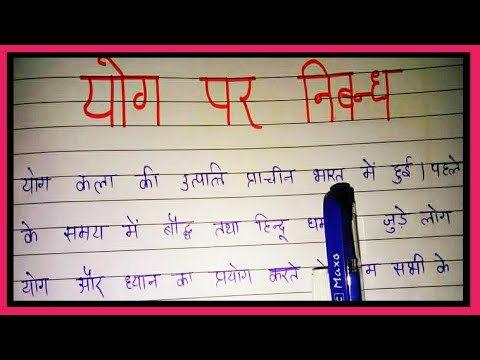 योग पर निबन्ध
योग कला की उत्पति प्राचीन भारत में हुई। पहले
के समय में बौद्ध तथा हिन्दू जुड़े लोग
योग और ध्यान का प्रयोग करते सभी के
Maxo